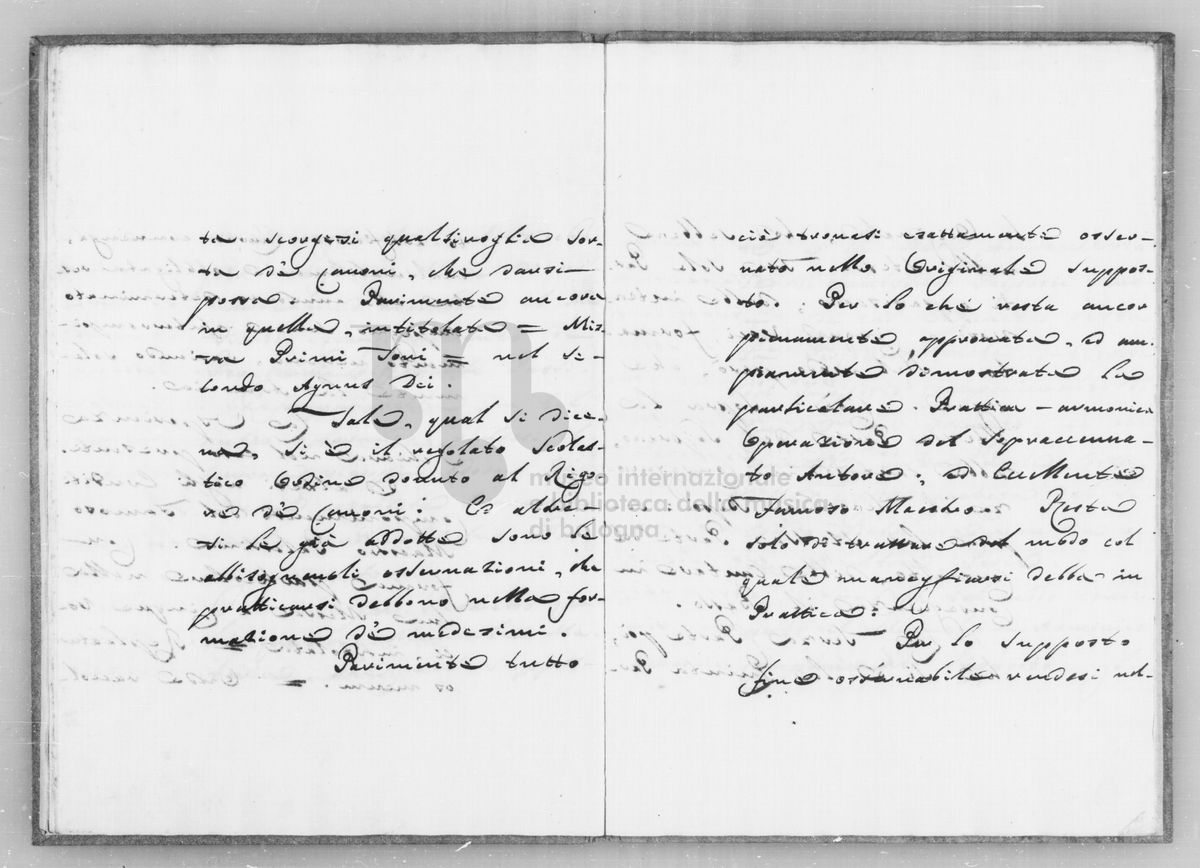 te scorgesi qualsivoglia sor-
ta de Canoni, che dausi-
possa. Parimente ancora
in quella, intitolata = Mis-
sa Primi Toni = nel Se-
condo Agnus Dei.
Tale, qual si dice-
va, si è il regolato Scolas-
tico Ordine dovuto al Rigo-
re de Canoni: Et altre-
sì le già addotte sono le
abbisognevoli osservazioni, che
pratticarsi debbono nella for-
mazione de medesimi.
Parimente tutto
ciò trovasi esattamente osser-
vato nello Originale suppos-
to. Per lo che resta ancor
pienamente approvata, ed am-
piamente dimostrata la
particolare Prattica-armonica
Operazione del sopraccenna-
to Autore; ed
Famoso Maestro. Resta
solo di trattare del modo col
quale maneggiarsi debba in
Prattica:
Per lo supposto
fine osservabile rendesi nel-
museo internazionale
e biblioteca della musica
di bologna